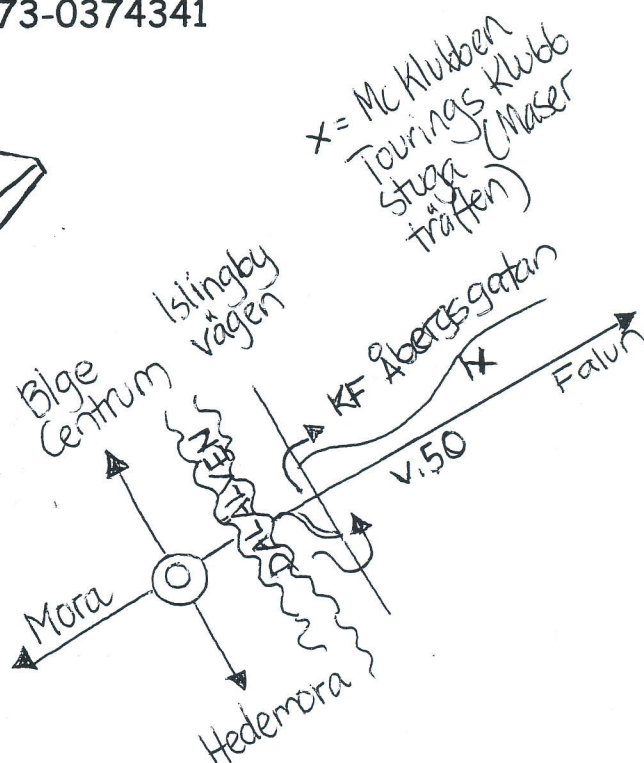 73-0374341
x = Mc Klubben
Tourings Klubb
stuga (Maser
träffen)
Islingby
vägen
KF Åbergsgatan
Falun
v.50
Blge
Centrum
DALÄLVEN
Mora
Hedemora
x